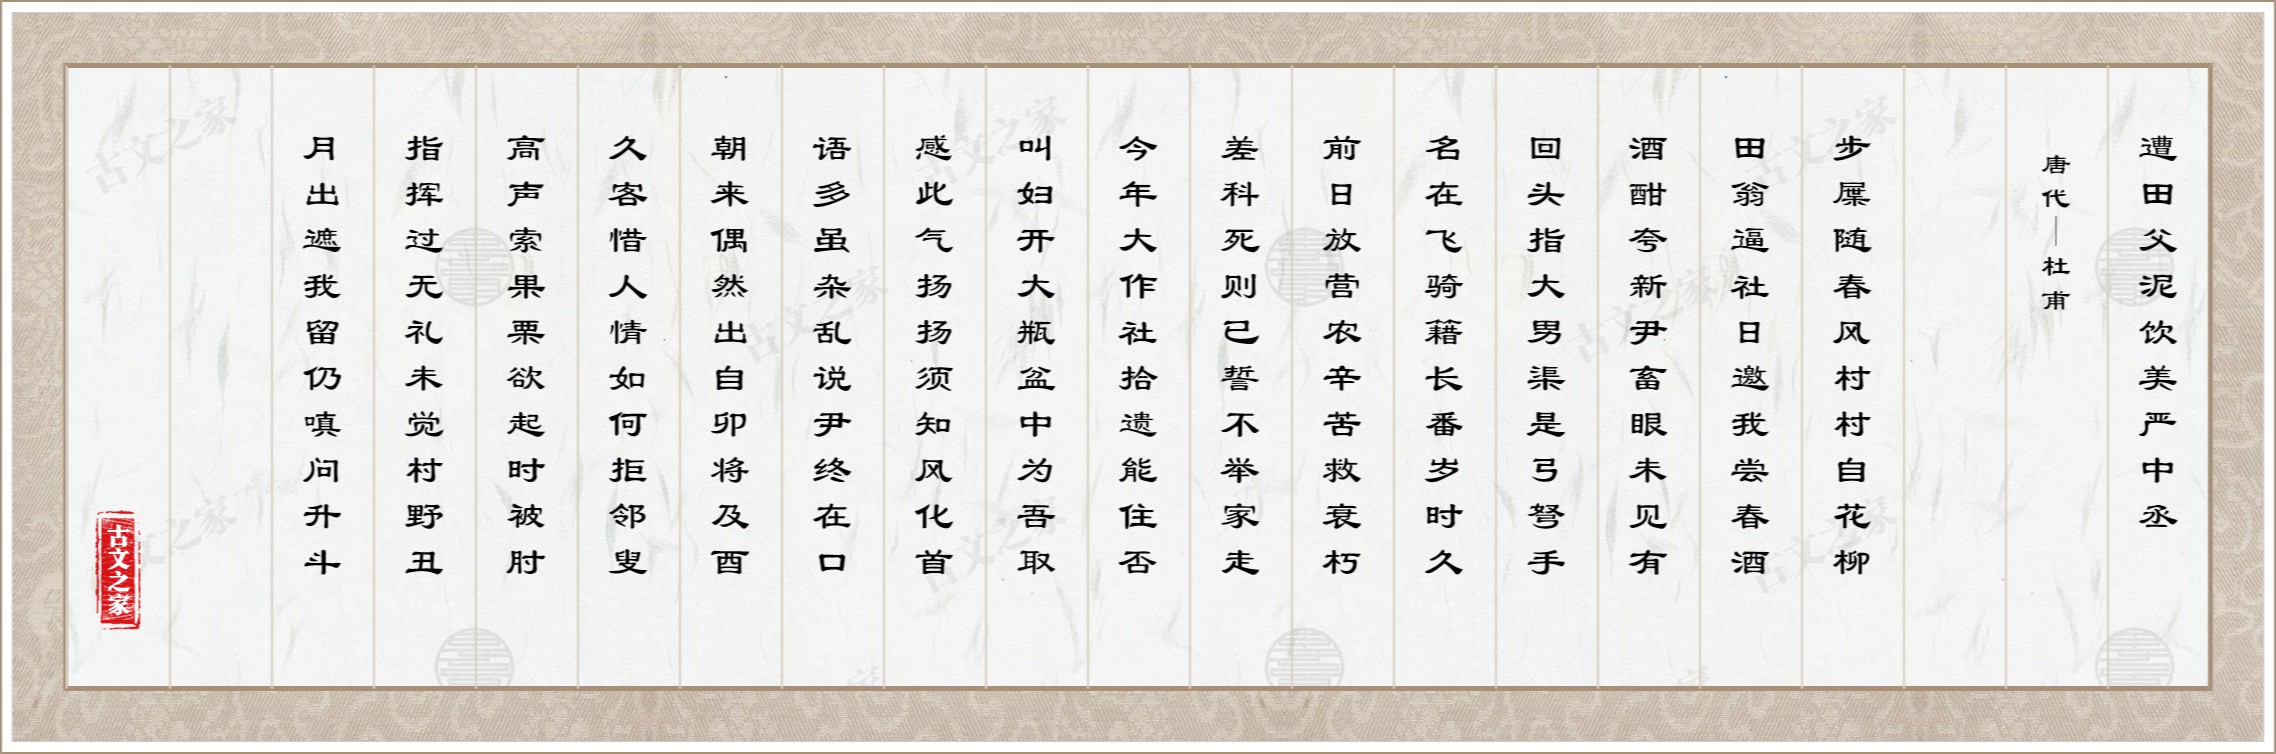 遭田父泥饮美严中丞
唐代—杜甫
步屧随春风村村自花柳
田翁逼社日邀我尝春酒
酒酣夸新尹畜眼未见有
回头指大男渠是弓弩手
名在飞骑籍长番岁时久
前日放营农辛苦救衰朽
差科死则已誓不举家走
今年大作社拾遗能住否
叫妇开大瓶盆中为吾取
感此气扬扬须知风化首
语多虽杂乱说尹终在口
朝来偶然出自卯将及酉
久客惜人情如何拒邻叟
高声索果栗欲起时被肘
指挥过无礼未觉村野丑
月出遮我留仍嗔问升斗
古文之家